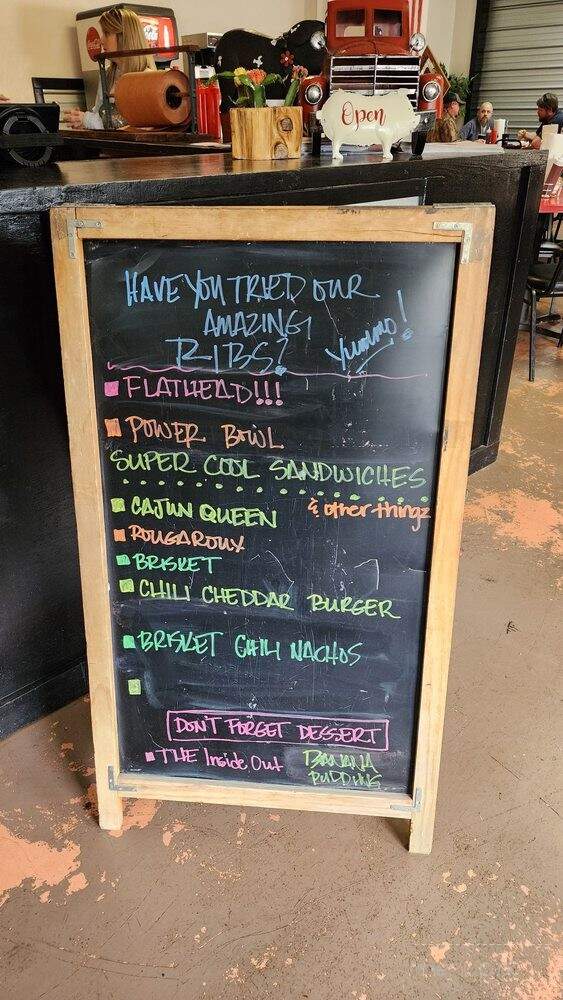 Open
HAVE YOU TRIED OUR
AMAZING
RIBS? Yummo!
FLATHEAD!!!
POWER BOWL
SUPER COOL SANDWICHES
& other thingz
CAJUN QUEEN
ROUGAROUX
BRISKET
CHILI CHEDDAR BURGER
BRISKET CHILI NACHOS
DON'T FORGET DESSERT
THE Inside Out
BANANA
PUDDING